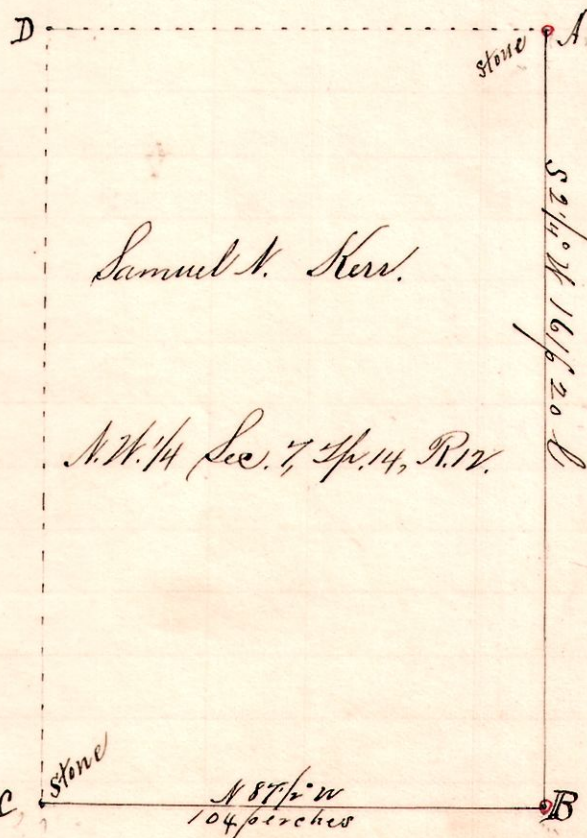 D
A
stone
S 2 1/4° W 161 p 20 l
Samuel N. Kerr.
N.W. 1/4 Sec. 7, Tp. 14, R. 12.
stone
C
N 87 1/2° W
104 perches
B